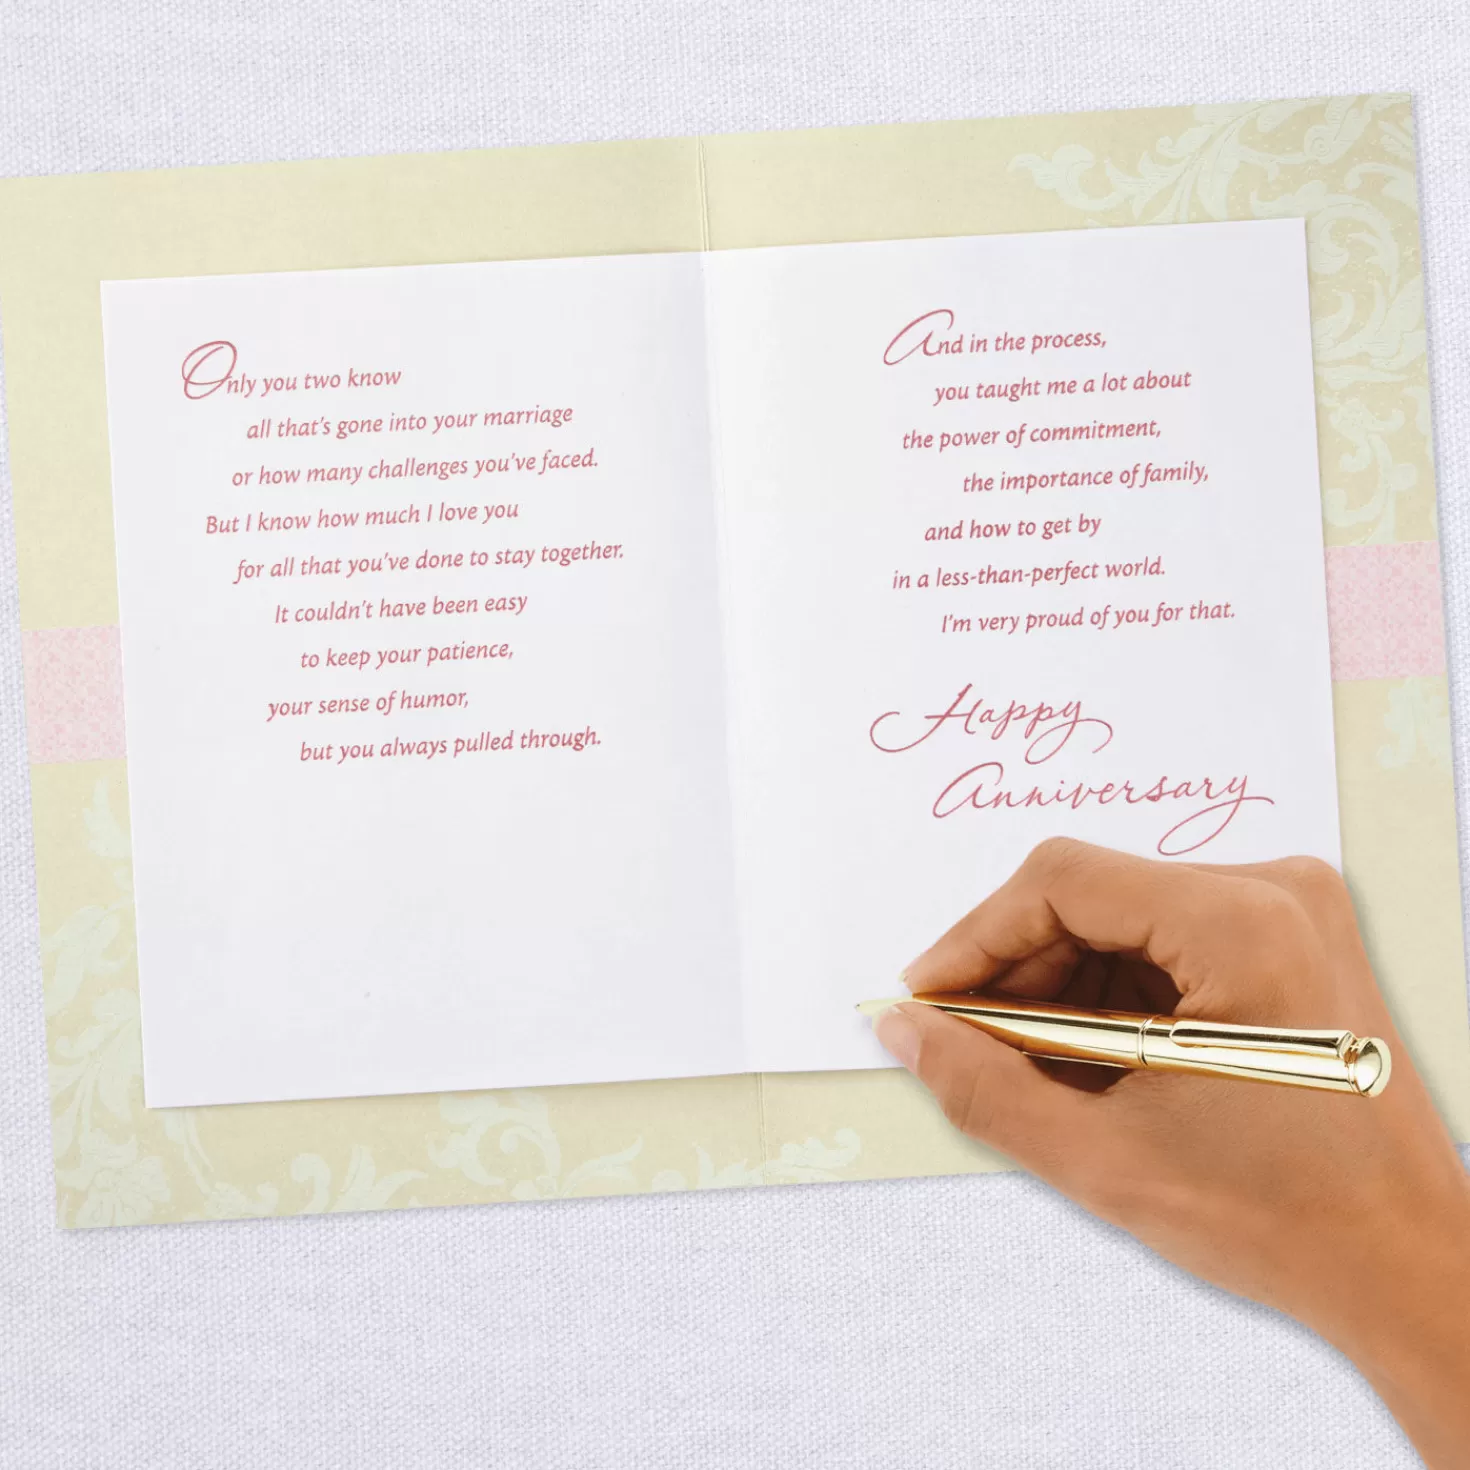 Only you two know
all that's gone into your marriage
or how many challenges you've faced.
But I know how much I love you
for all that you've done to stay together.
It couldn't have been easy
to keep your patience,
your sense of humor,
but you always pulled through.
And in the process,
you taught me a lot about
the power of commitment,
the importance of family,
and how to get by
in a less-than-perfect world.
I'm very proud of you for that.
Happy
Anniversary